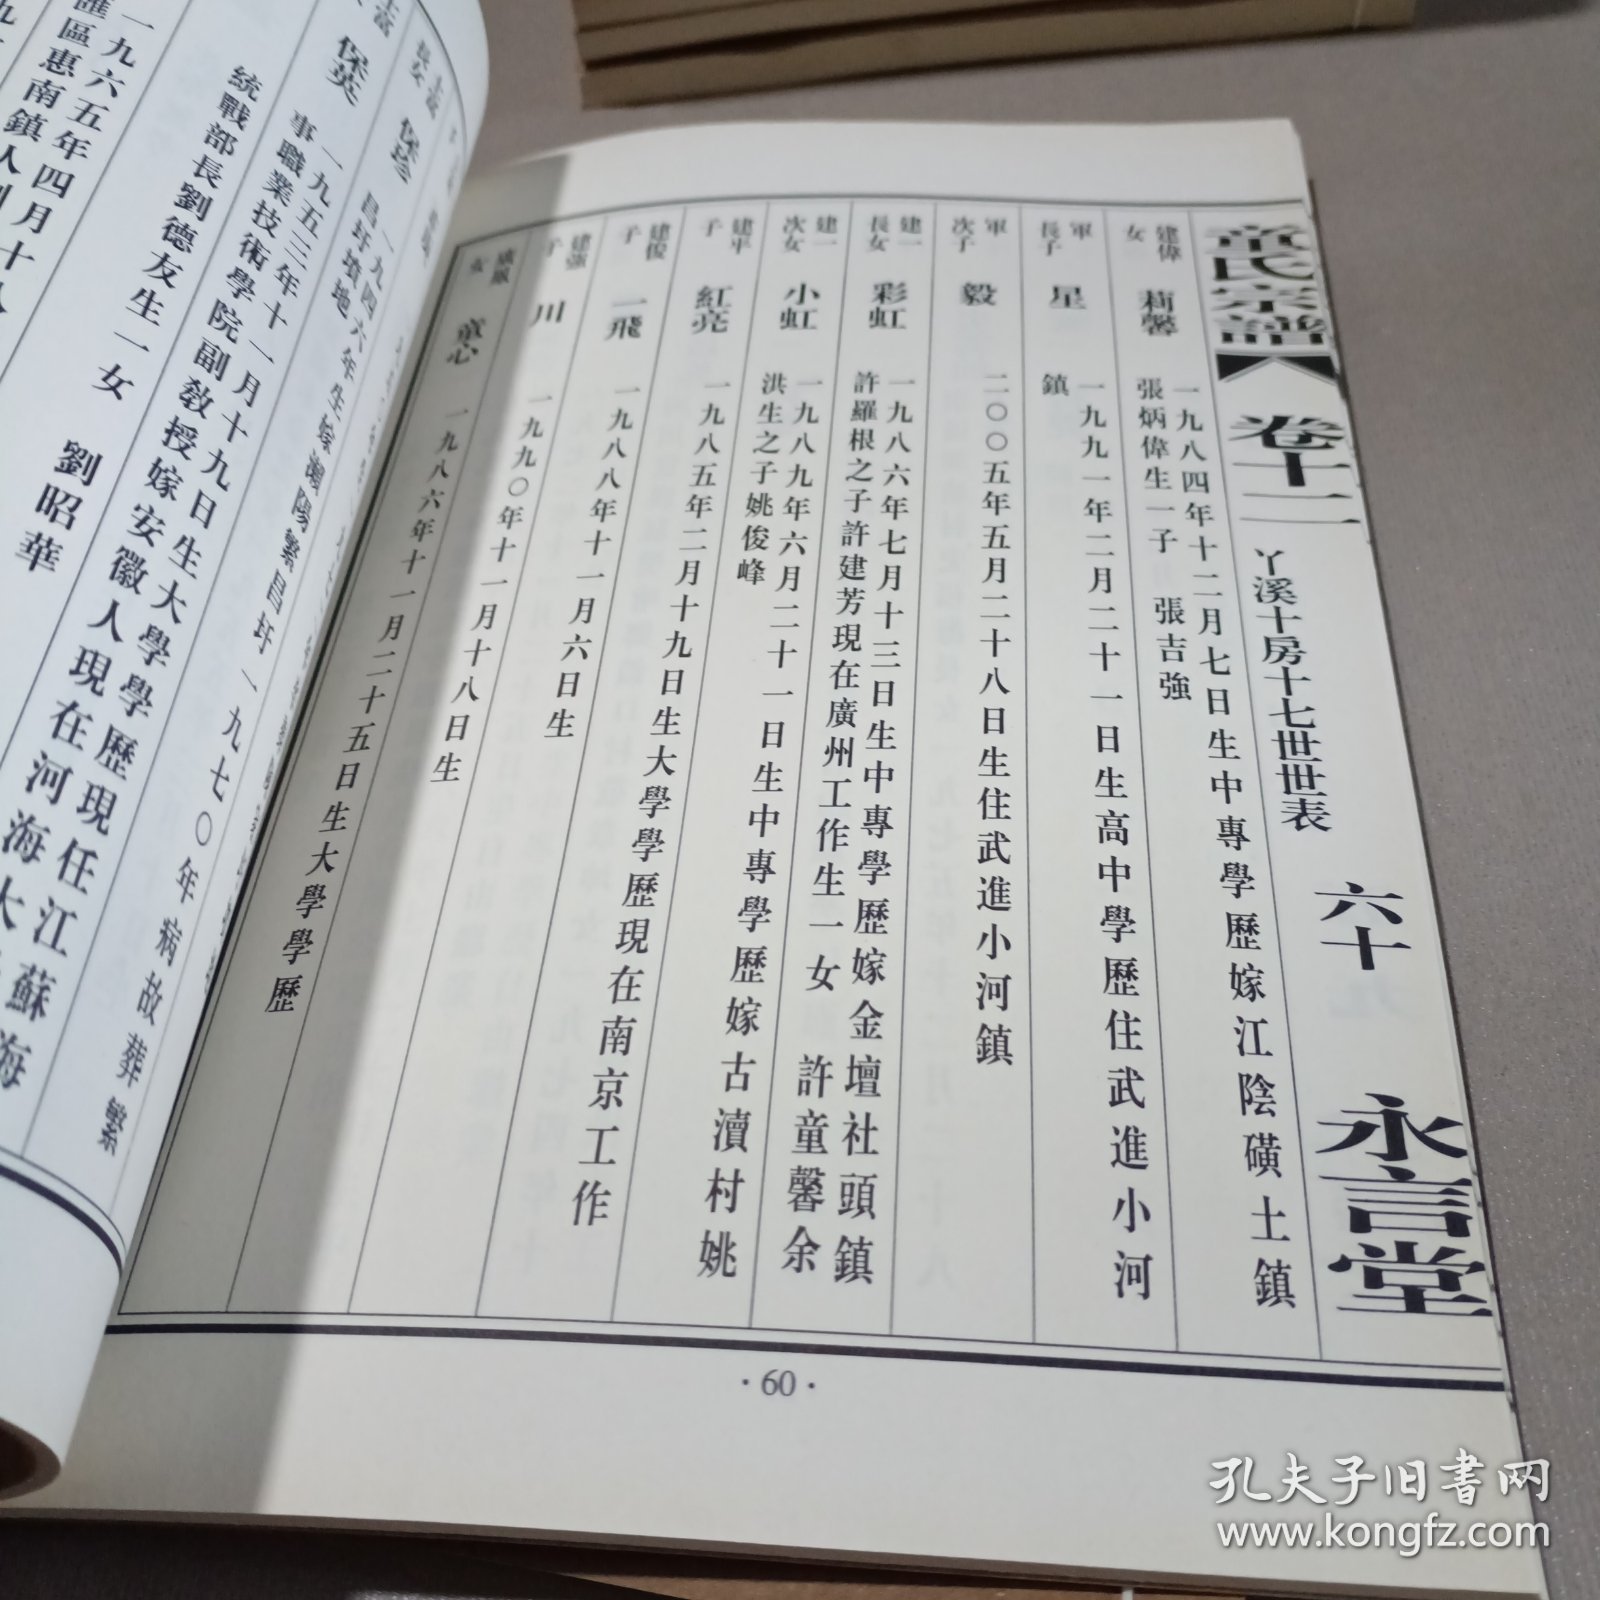 童氏宗譜 卷十二 丫溪十房十七世世表 六十 永言堂
建偉女 莉馨 一九八四年十二月七日生中專學歷嫁江陰磺土鎮
張炳偉生一子 張吉強
軍長子 星 一九九一年二月二十一日生高中學歷住武進小河
鎮
軍次子 毅 二〇〇五年五月二十八日生住武進小河鎮
建一長女 彩虹 一九八六年七月十三日生中專學歷嫁金壇社頭鎮
許羅根之子許建芳現在廣州工作生一女 許童馨余
建一次女 小虹 一九八九年六月二十一日生中專學歷嫁古瀆村姚
洪生之子姚俊峰
建平子 紅亮 一九八五年二月十九日生大學學歷現在南京工作
建俊子 一飛 一九八八年十一月六日生
建強子 川 一九九〇年十一月十八日生
女 童心 一九八六年十一月二十五日生大學學歷
·60·
長女 保珍 一九四六年生嫁灣陽繁昌圩一九七〇年病故葬繁
昌圩墳地
保英 一九五三年十一月十九日生大學學歷現任江蘇海
事職業技術學院副教授嫁安徽人現在河海大
統戰部長劉德友生一女 劉昭華
一九六五年四月十八
匯區惠南鎮人
孔夫子旧书网
www.kongfz.com